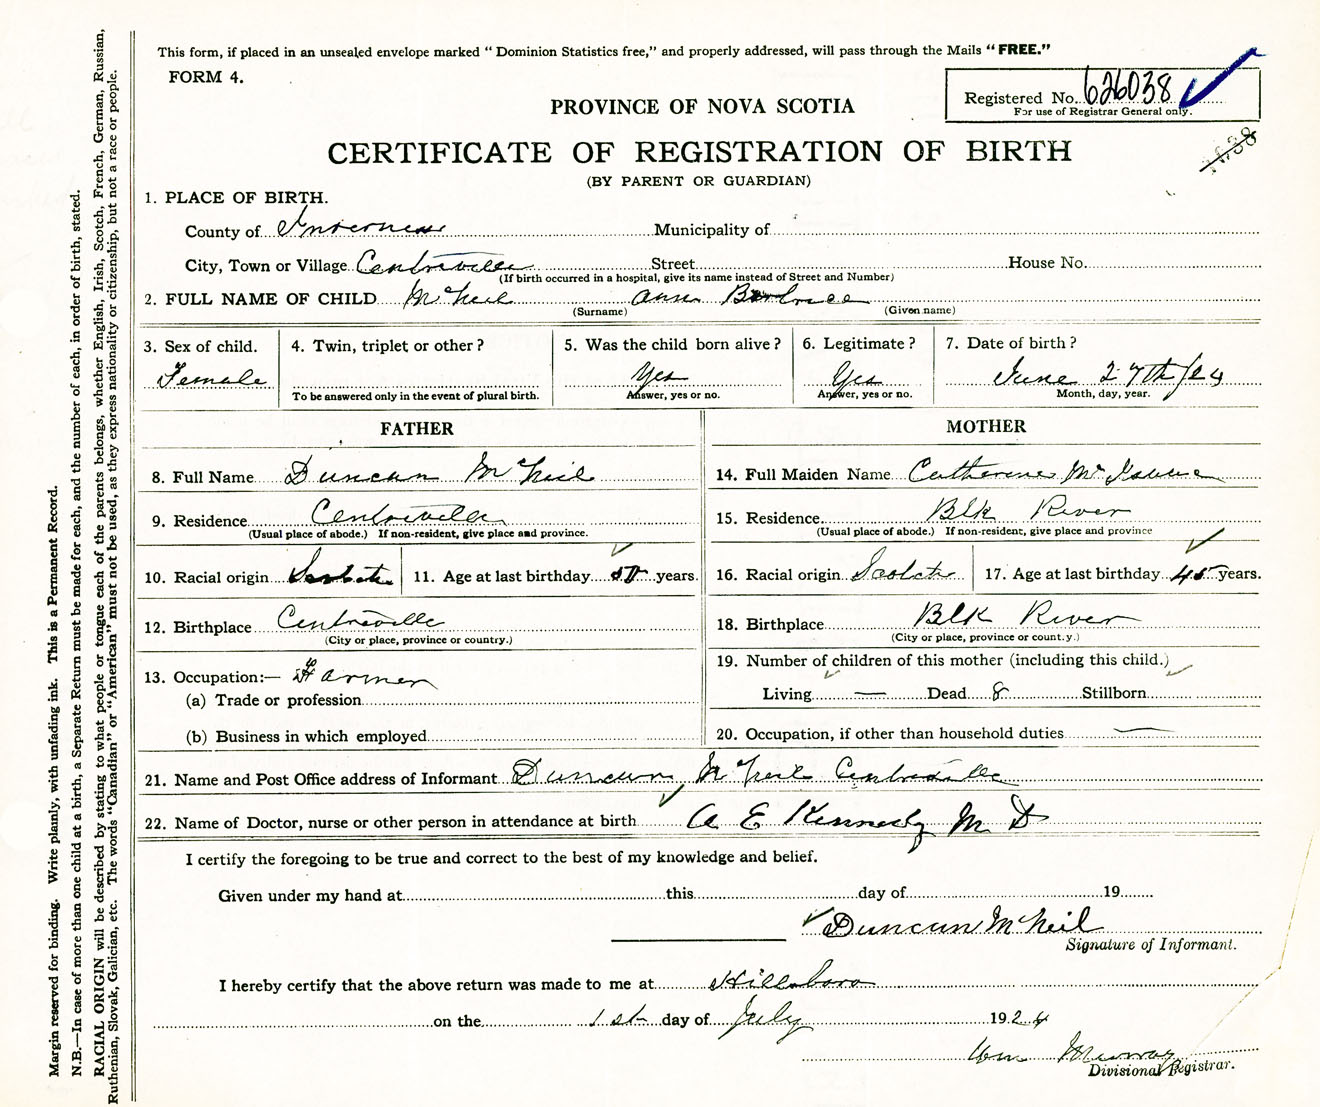 This form, if placed in an unsealed envelope marked "Dominion Statistics free," and properly addressed, will pass through the Mails "FREE."
FORM 4.
Registered No. 626038
For use of Registrar General only.
PROVINCE OF NOVA SCOTIA
CERTIFICATE OF REGISTRATION OF BIRTH
(BY PARENT OR GUARDIAN)
1. PLACE OF BIRTH.
County of Inverness Municipality of
City, Town or Village Centreville Street House No.
(If birth occurred in a hospital, give its name instead of Street and Number)
2. FULL NAME OF CHILD McNeil Ann
(Surname) (Given name)
3. Sex of child. 4. Twin, triplet or other? 5. Was the child born alive? 6. Legitimate? 7. Date of birth?
Female Yes Yes June 27th/24
To be answered only in the event of plural birth. Answer, yes or no. Answer, yes or no. Month, day, year.
FATHER MOTHER
8. Full Name Duncan McNeil 14. Full Maiden Name Catherine Mc
9. Residence Centreville 15. Residence Blk River
(Usual place of abode.) If non-resident, give place and province. (Usual place of abode.) If non-resident, give place and province
10. Racial origin Scotch 11. Age at last birthday years. 16. Racial origin Scotch 17. Age at last birthday 45 years.
12. Birthplace Centreville 18. Birthplace Blk River
(City or place, province or country.) (City or place, province or country.)
13. Occupation:— Farmer 19. Number of children of this mother (including this child.)
(a) Trade or profession Living — Dead 8 Stillborn
(b) Business in which employed 20. Occupation, if other than household duties —
21. Name and Post Office address of Informant Duncan McNeil Centreville
22. Name of Doctor, nurse or other person in attendance at birth A E Kennedy M D
I certify the foregoing to be true and correct to the best of my knowledge and belief.
Given under my hand at this day of 19
Duncan McNeil
Signature of Informant.
I hereby certify that the above return was made to me at Hillsboro
on the 1st day of July 1924
Wm Murray
Divisional Registrar.
Margin reserved for binding. Write plainly, with unfading ink. This is a Permanent Record.
N.B.—In case of more than one child at a birth, a Separate Return must be made for each, and the number of each, in order of birth, stated.
RACIAL ORIGIN will be described by stating to what people or tongue each of the parents belongs, whether English, Irish, Scotch, French, German, Russian,
Ruthenian, Slovak, Galician, etc. The words "Canadian" or "American" must not be used, as they express nationality or citizenship, but not a race or people.